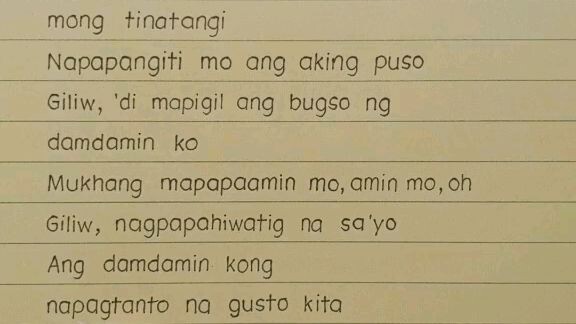 mong tinatangi
Napapangiti mo ang aking puso
Giliw, 'di mapigil ang bugso ng
damdamin ko
Mukhang mapapaamin mo, amin mo, oh
Giliw, nagpapahiwatig na sa'yo
Ang damdamin kong
napagtanto na gusto kita